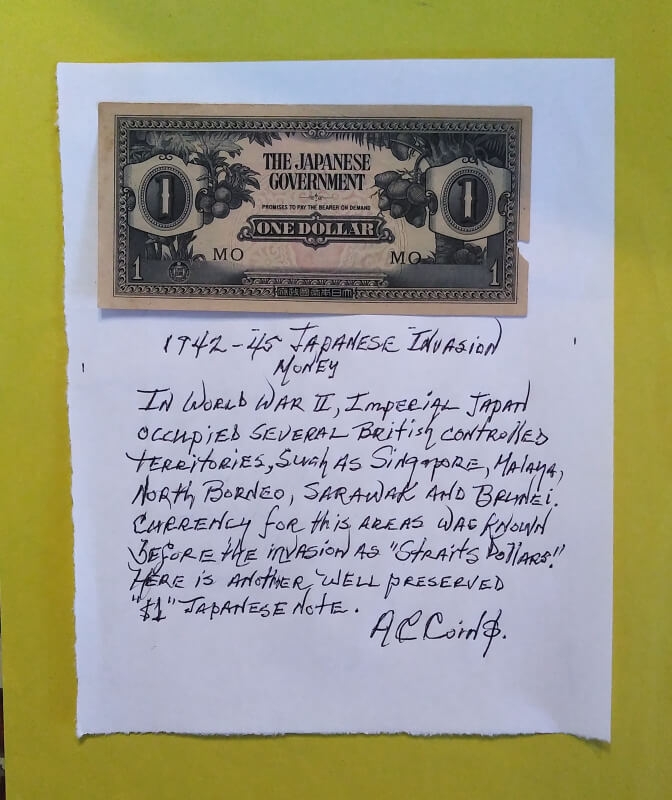 THE JAPANESE
GOVERNMENT
PROMISES TO PAY THE BEARER ON DEMAND
ONE DOLLAR
1
1
MO
MO
1
1
府政國帝本日大
1942-45 JAPANESE INVASION
MONEY
IN WORLD WAR II, IMPERIAL JAPAN
OCCUPIED SEVERAL BRITISH CONTROLLED
TERRITORIES, SUCH AS SINGAPORE, MALAYA,
NORTH BORNEO, SARAWAK AND BRUNEI.
CURRENCY for this AREAS WAS KNOWN
BEFORE THE INVASION AS "STRAITS DOLLARS."
HERE IS ANOTHER WELL PRESERVED
"$1" JAPANESE NOTE.
A C Coin$.